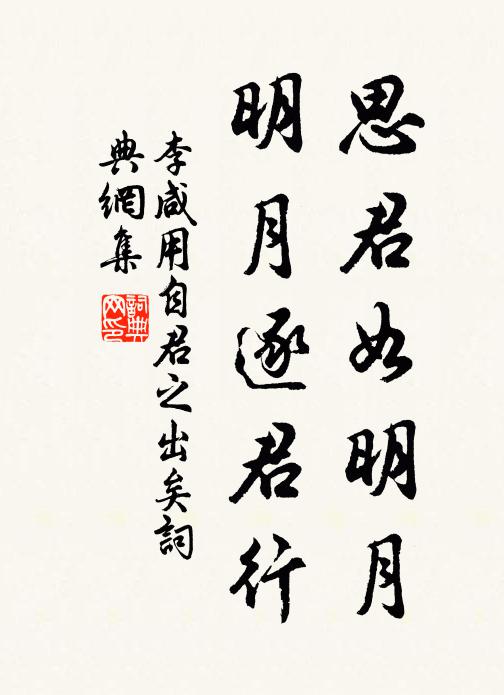 思君如明月
明月逐君行
李咸用自君之出矣詞
典網集
詞典
网印